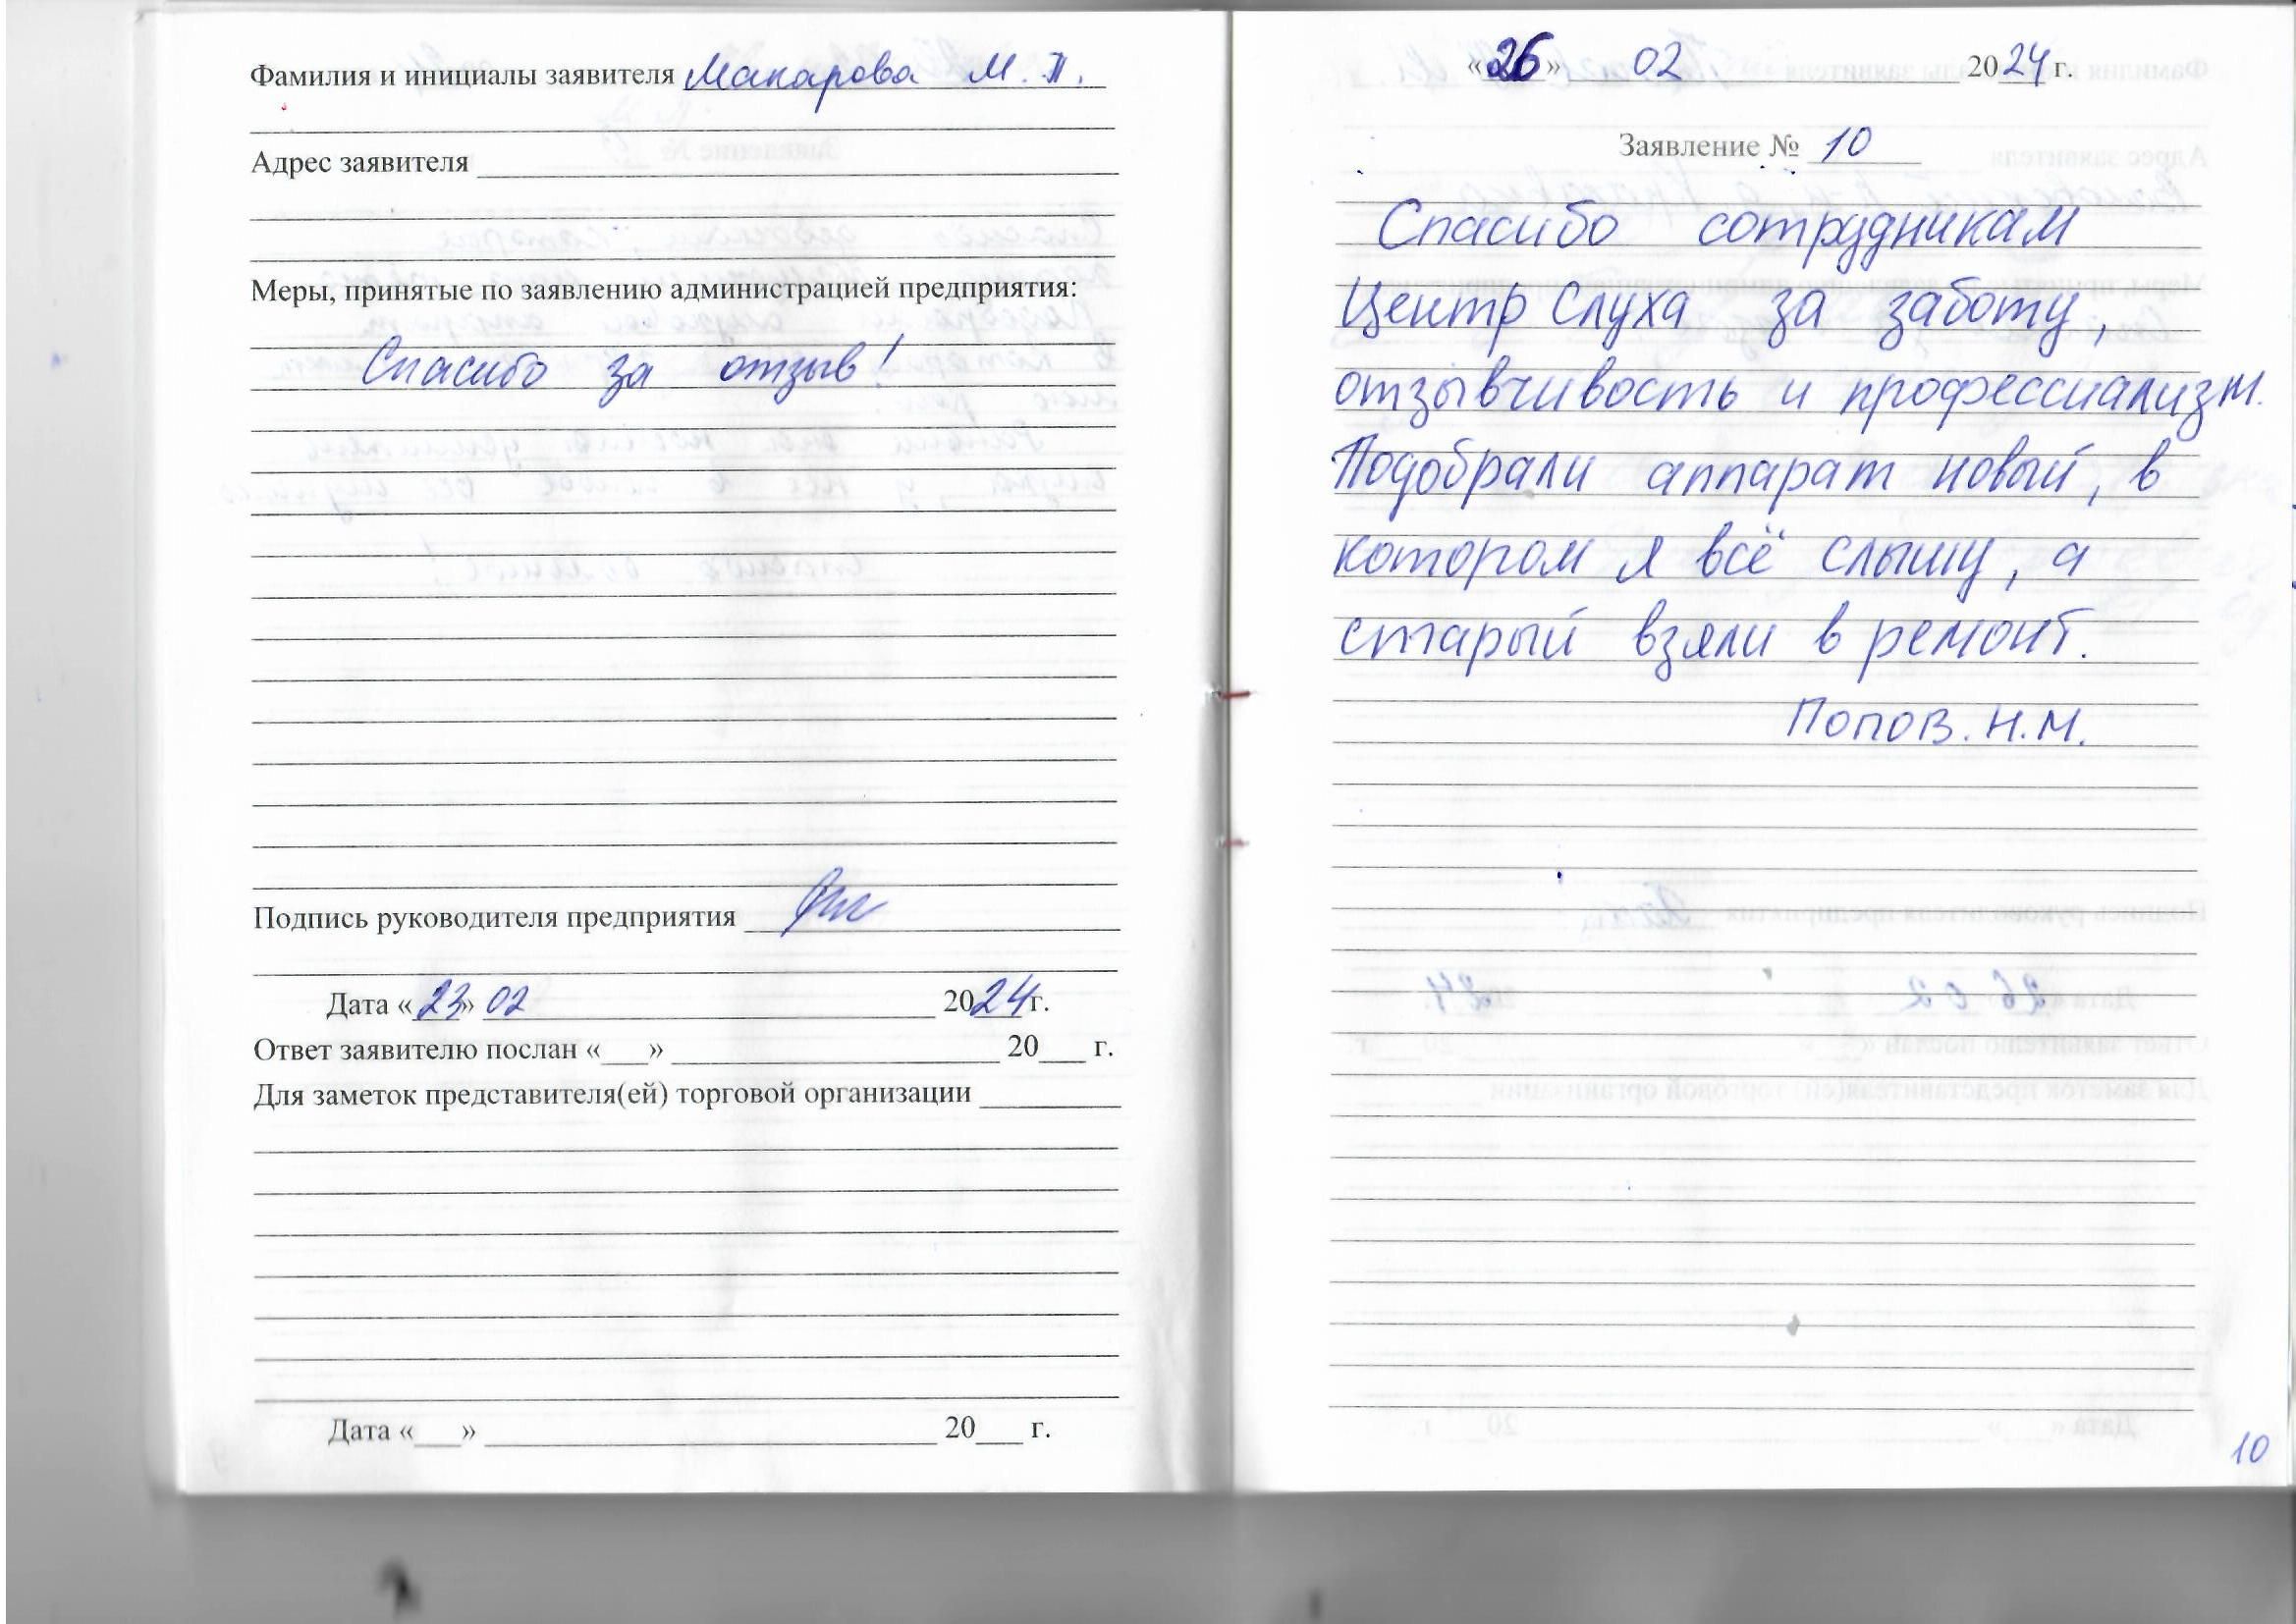 Фамилия и инициалы заявителя Макарова М.П.
Адрес заявителя
Меры, принятые по заявлению администрацией предприятия:
Спасибо за отзыв!
Подпись руководителя предприятия
Дата «23» 02 2024 г.
Ответ заявителю послан «___» 20___ г.
Для заметок представителя(ей) торговой организации
Дата «___» 20___ г.
«26» 02 2024 г.
Заявление № 10
Спасибо сотрудникам
Центр Слуха за заботу,
отзывчивость и профессиализм.
Подобрали аппарат новый, в
котором я всё слышу, а
старый взяли в ремонт.
Попов. Н.М.
10